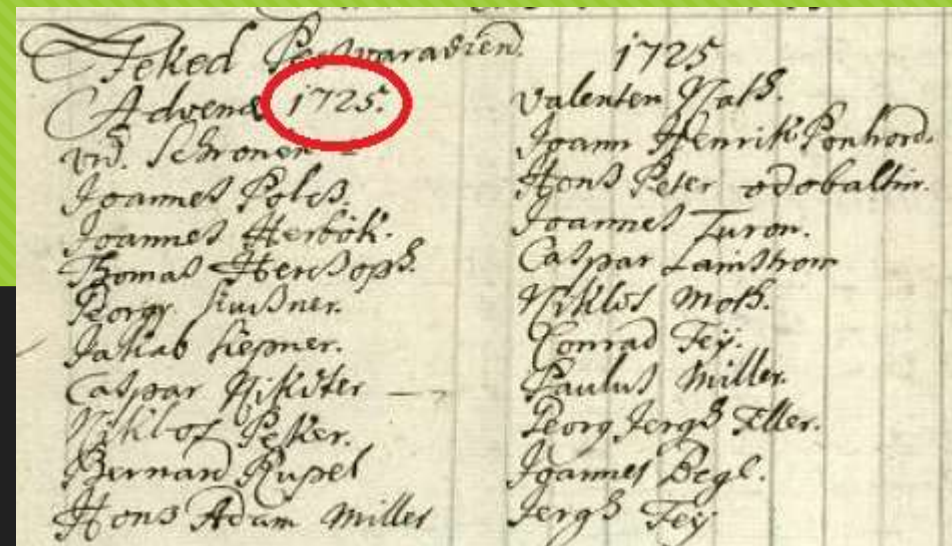 Feked Pecsvaradien.
Advenæ 1725.
vid. Schronen
Joannes Polcz.
Joannes Herbök.
Thomas
Georgy
Jakab Liepner.
Caspar Rikster
Niklos Peker.
Bernard Rupel
Hons Adam Miller
1725
Valenten
Joann Henrik Ponhord.
Hons Peter odobaltin.
Joannes Turon.
Caspar Lainstrom
Niklos Moth.
Conrad Fey.
Paulus Miller.
Georg Jergh Eller.
Joannes Begl.
Jergh Fey